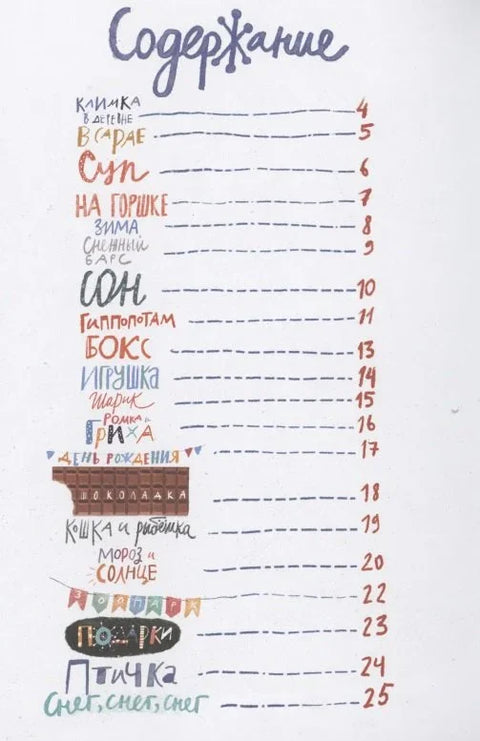 Содержание
КЛИМКА
В ДЕРЕВНЕ 4
В САРАЕ 5
Суп 6
НА ГОРШКЕ 7
ЗИМА 8
Снежный
БАРС 9
СОН 10
ГИППОПОТАМ 11
БОКС 13
ИГРУШКА 14
Шарик 15
РОМКА и
ГРИХА 16
ДЕНЬ РОЖДЕНИЯ 17
ШОКОЛАДКА 18
КОШКА и рыбёшка 19
МОРОЗ и
СОЛНЦЕ 20
ЗООПАРК 22
ПОДАРКИ 23
Птичка 24
Снег, снег, снег 25